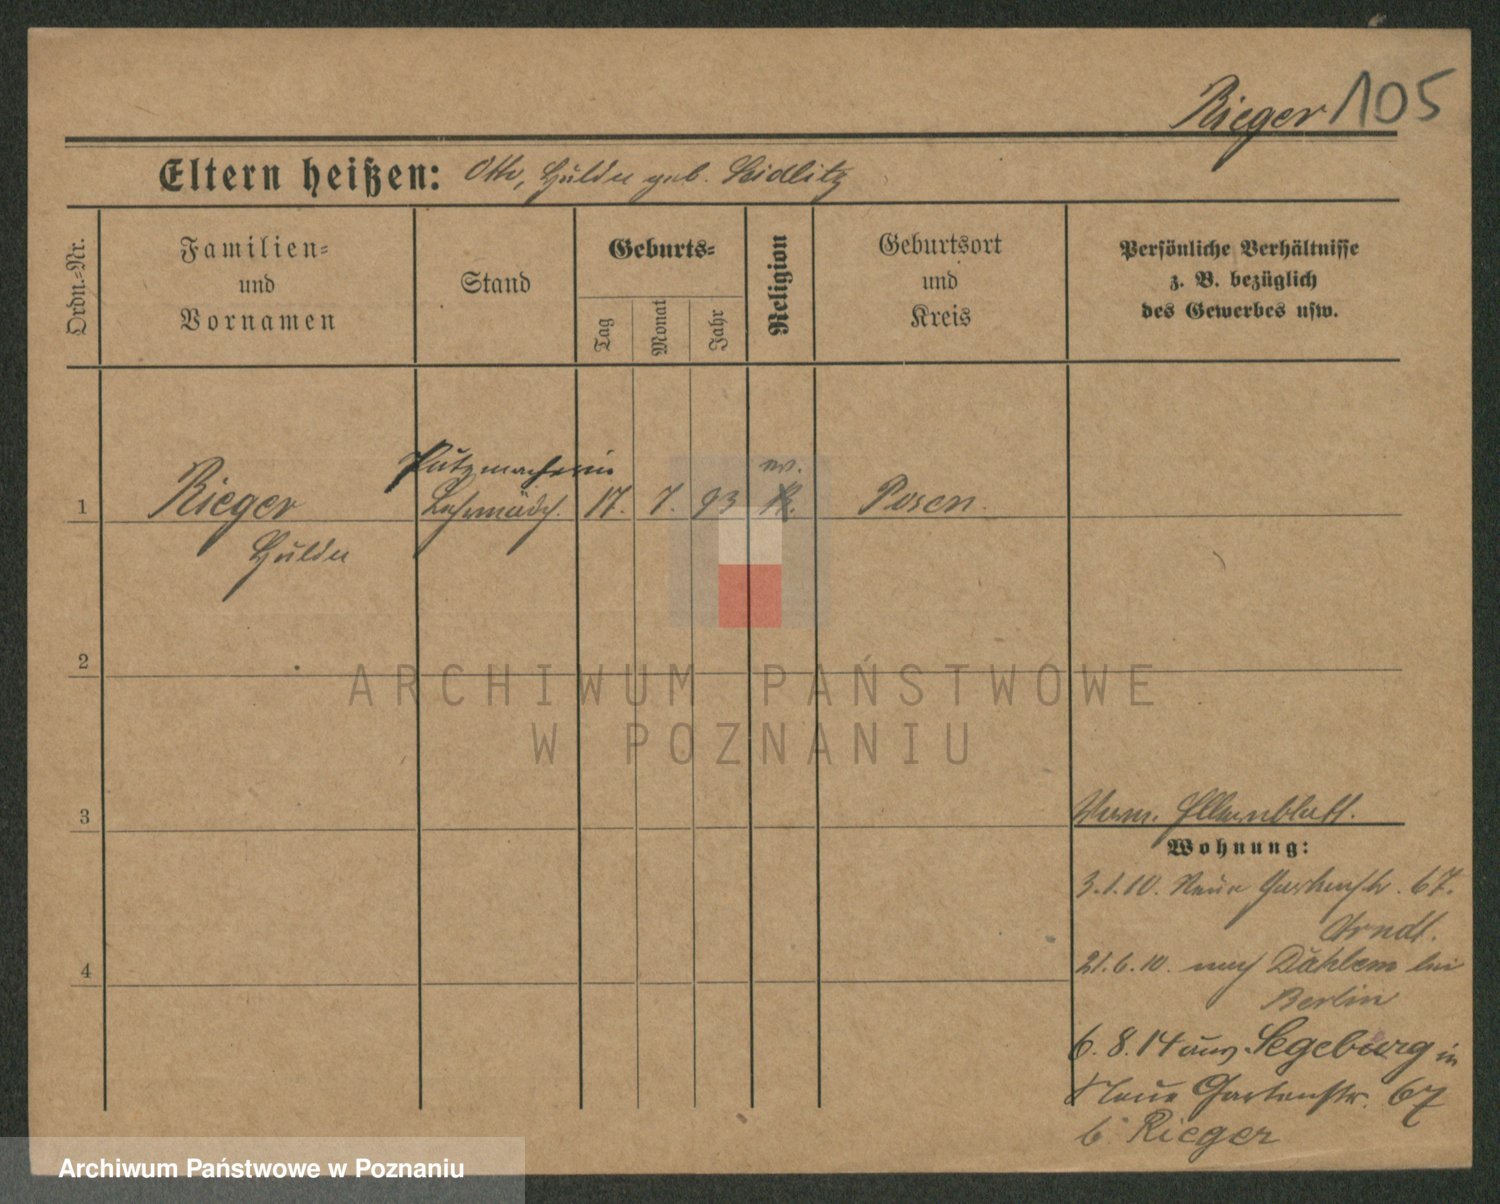 Rieger 105
Eltern heißen: Otto, Hulda geb. Seidlitz
Ordn.-Nr.
Familien-
und
Vornamen
Stand
Geburts-
Tag
Monat
Jahr
Religion
Geburtsort
und
Kreis
Persönliche Verhältnisse
z. B. bezüglich
des Gewerbes usw.
Putzmacherin
ev.
1 Rieger Lehrmädch. 17. 7. 93 K. Posen.
Hulda
2
ARCHIWUM PAŃSTWOWE
W POZNANIU
3
Elternblatt.
Wohnung:
3.1.10. Neue Gartenstr. 67.
Arndt.
4
21.6.10. nach Dahlem bei
Berlin
6.8.14 aus Segeburg in
Neue Gartenstr. 67
b. Rieger
Archiwum Państwowe w Poznaniu